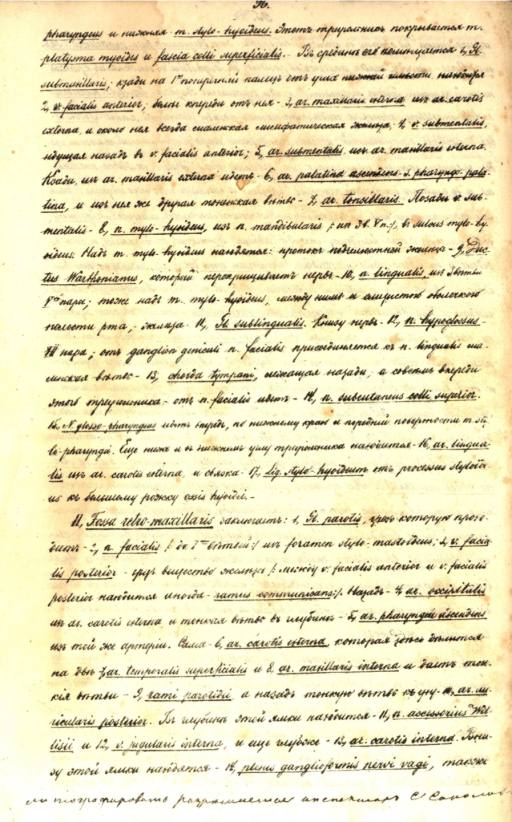 96.
pharyngeus и нижняя m. stylo-hyoideus. Этотъ треугольникъ покрывается m.
platysma myoides и fascia colli superficialis. Въ срединѣ его помѣщается 1, Gl.
submaxillaris; кзади на 1 поперечный палецъ отъ угла нижней челюсти находится
2, v. facialis anterior, valis кпереди отъ нея - 3, ar. maxillaris externa изъ ar. carotis
externa, и около нея всегда лимфатическая железа. 4, v. submentalis,
идущая назадъ въ v. facialis anterior; 5, ar. submentalis изъ ar. maxillaris externa.
Кзади, изъ ar. maxillaris externa идетъ - 6, ar. palatina ascendens s. pharyngo-pala-
tina, и изъ нея же другая тоненькая вѣтвь - 7, ar. tonsillaris. Позади v. sub-
mentalis - 8, n. mylo-hyoideus, изъ n. mandibularis въ sulcus mylo-hy-
oideus. Надъ m. mylo-hyoideus находятся: протокъ подчелюстной железы - 9, Duc-
tus Warthonianus, который перекрещиваетъ нервъ - 10, n. lingualis, изъ 3 вѣтви
пары; тоже надъ m. mylo-hyoideus, между нимъ и слизистой оболочкой
полости рта, железа - 11, Gl. sublingualis. Книзу нервъ - 12, n. hypoglossus -
XII пара; отъ ganglion geniculi n. facialis присоединяется къ n. lingualis ма-
ленькая вѣтвь - 13, chorda tympani, лежащая назади, а совсѣмъ впереди
этого треугольника - отъ n. facialis идетъ - 14, n. subcutaneus colli superior.
15, N. glosso-pharyngeus идетъ кнутри, по нижнему краю и передней поверхности m. sty-
lo-pharyngei. Еще ниже и въ нижнемъ углу треугольника находится - 16, ar. lingua-
lis изъ ar. carotis externa, и связка - 17, Lig. stylo-hyoideum отъ processus styloide-
us къ меньшему рожку ossis hyoidei. -
II, Fossa retro-maxillaris заключаетъ: 1, Gl. parotis, чрезъ которую прохо-
дитъ - 2, n. facialis изъ foramen stylo-mastoideus; 3, v. facia-
lis posterior - чрезъ вещество железы /: между v. facialis anterior и v. facialis
posterior находится иногда - ramus communicans :/. Назадъ - 4, ar. occipitalis
изъ ar. carotis externa и тонкая вѣтвь въ глубинѣ - 5, ar. pharyngea ascendens
изъ той же артеріи. Сама - 6, ar. carotis externa, которая здѣсь дѣлится
на двѣ 7, ar. temporalis superficialis и 8, ar. maxillaris interna и даетъ тон-
кія вѣтви - 9, rami parotidei а назадъ тонкую вѣтвь къ уху - 10, ar. au-
ricularis posterior. Въ глубинѣ этой ямки находится - 11, n. accessorius Wil-
lisii и 12, v. jugularis interna, и еще глубже - 13, ar. carotis interna. Кни-
зу этой ямки находятся - 14, plexus gangliformis nervi vagi, также
литографировать разрѣшается инспекторъ С. Соколовъ